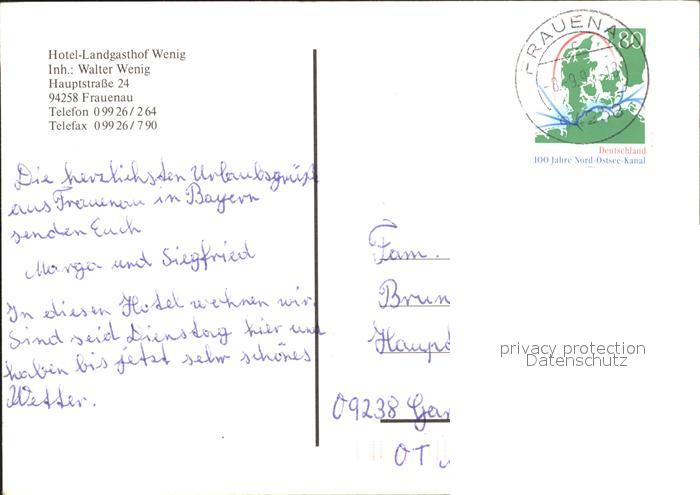 Hotel-Landgasthof Wenig
Inh.: Walter Wenig
Hauptstraße 24
94258 Frauenau
Telefon 0 99 26 / 2 64
Telefax 0 99 26 / 7 90
FRAUENAU
80
Deutschland
100 Jahre Nord-Ostsee-Kanal
Die herzlichsten Urlaubsgrüße
aus Frauenau in Bayern
senden Euch
Marga und Siegfried
In diesen Hotel wohnen wir.
Sind seid Dienstag hier und
haben bis jetzt sehr schönes
Wetter.
Fam.
Brun
Haupt
09238
OT
privacy protection
Datenschutz